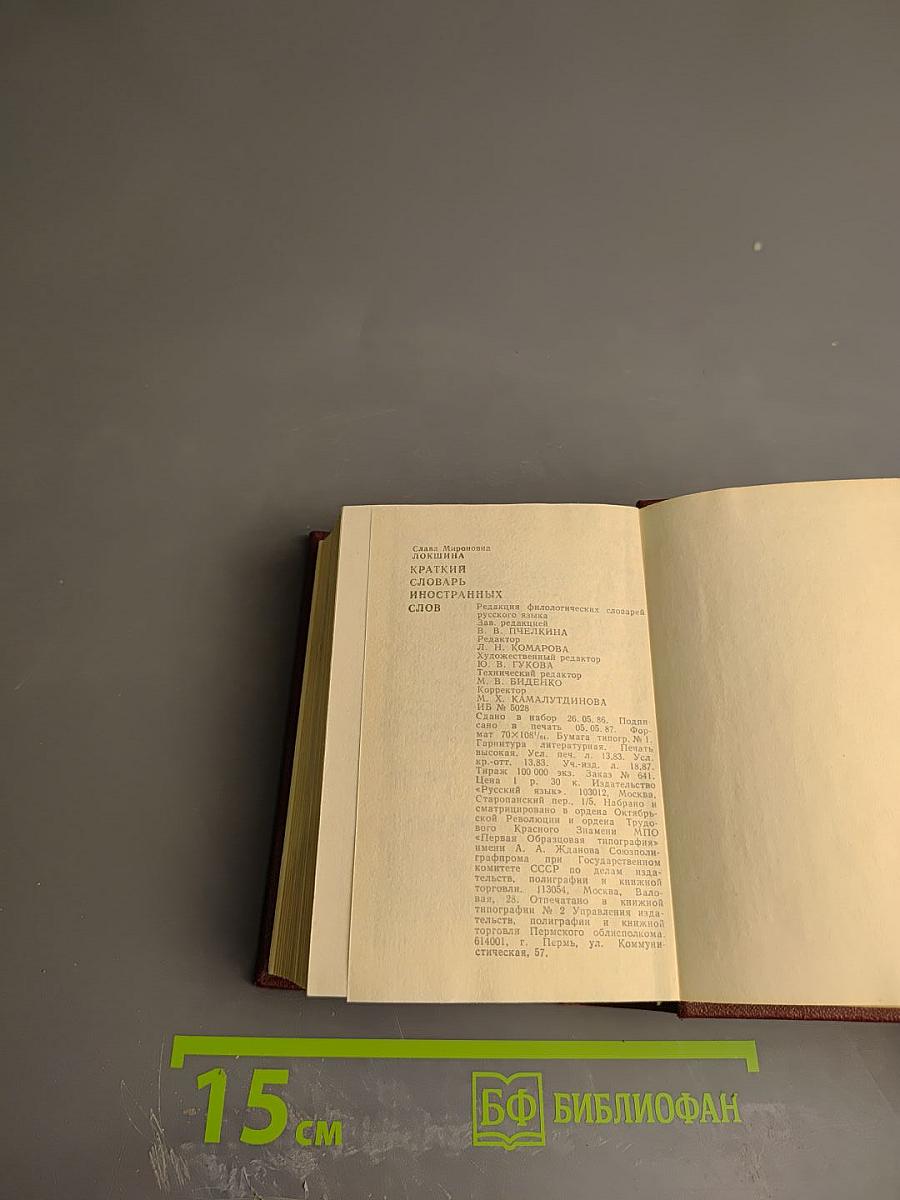 Слава Мироновна
ЛОКШИНА
КРАТКИЙ
СЛОВАРЬ
ИНОСТРАННЫХ
СЛОВ
Редакция филологических словарей
русского языка
Зав. редакцией
В. В. ПЧЕЛКИНА
Редактор
Л. Н. КОМАРОВА
Художественный редактор
Ю. В. ГУКОВА
Технический редактор
М. В. БИДЕНКО
Корректор
М. Х. КАМАЛУТДИНОВА
ИБ № 5028
Сдано в набор 26.05.86. Подпи-
сано в печать 05.05.87. Фор-
мат 70×108¹/₆₄. Бумага типогр. № 1.
Гарнитура литературная. Печать
высокая. Усл. печ. л. 13,83. Усл.
кр.-отт. 13,83. Уч.-изд. л. 18,87.
Тираж 100 000 экз. Заказ № 641.
Цена 1 р. 30 к. Издательство
«Русский язык». 103012, Москва,
Старопанский пер., 1/5. Набрано и
сматрицировано в ордена Октябрь-
ской Революции и ордена Трудо-
вого Красного Знамени МПО
«Первая Образцовая типография»
имени А. А. Жданова Союзполи-
графпрома при Государственном
комитете СССР по делам изда-
тельств, полиграфии и книжной
торговли. 113054, Москва, Вало-
вая, 28. Отпечатано в книжной
типографии № 2 Управления изда-
тельств, полиграфии и книжной
торговли Пермского облисполкома.
614001, г. Пермь, ул. Коммуни-
стическая, 57.
15 см
БФ БИБЛИОФАН